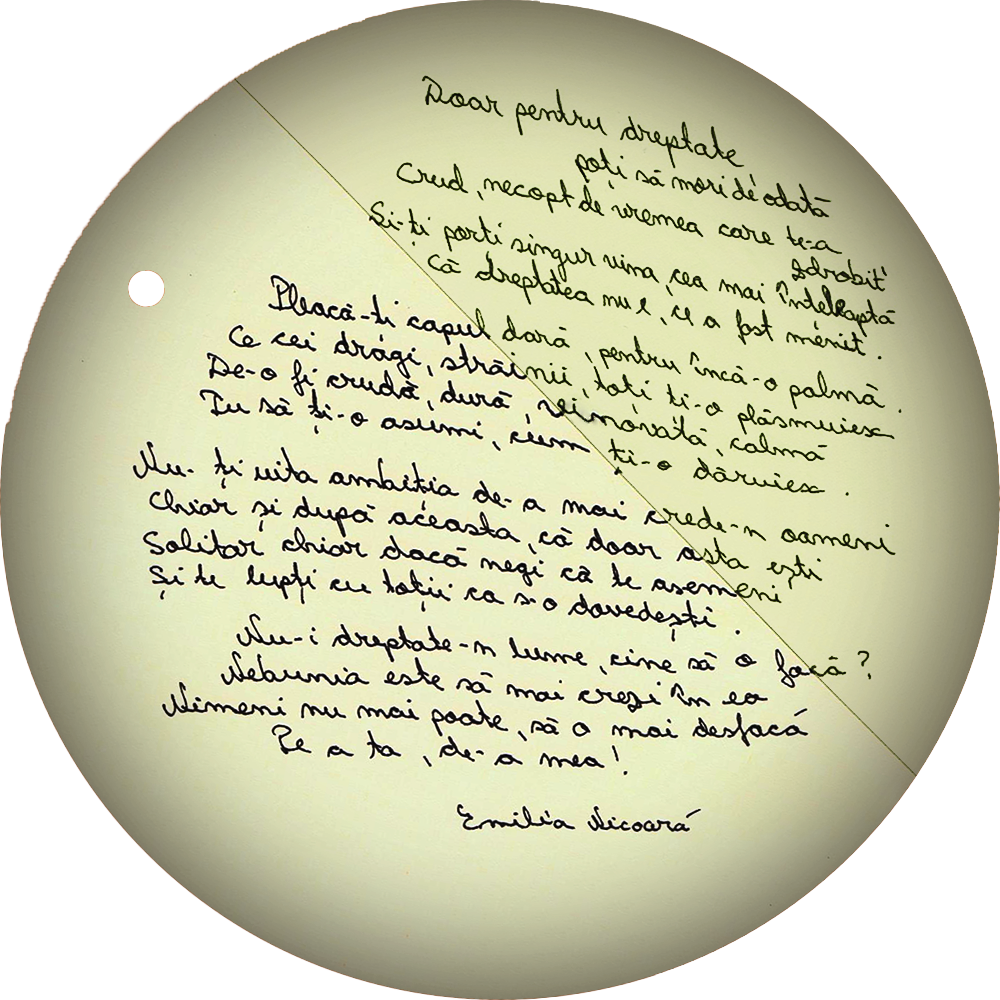 Doar pentru dreptate
poți să mori de'odată
Crud, necopt de vremea care te-a
zdrobit
Și-ți porți singur vina, cea mai înțeleaptă
Că dreptatea nu e, ce a fost menit.
Pleacă-ți capul dară, pentru încă-o palmă.
Ce cei dragi, străinii, toți ți-o plăsmuiesc
De-o fi crudă, dură, vinovată, calmă
Tu să ți-o asumi, cum ți-o dăruiesc.
Nu-ți uita ambiția de-a mai crede-n oameni
Chiar și după aceasta, că doar asta ești
Solitar chiar dacă negi că te asemeni
Și te lupți cu toții ca s-o dovedești.
Nu-i dreptate-n lume, cine să o facă?
Nebunia este să mai crezi în ea
Nimeni nu mai poate, să o mai desfacă
Pe a ta, de-a mea!
Emilia Nicoară